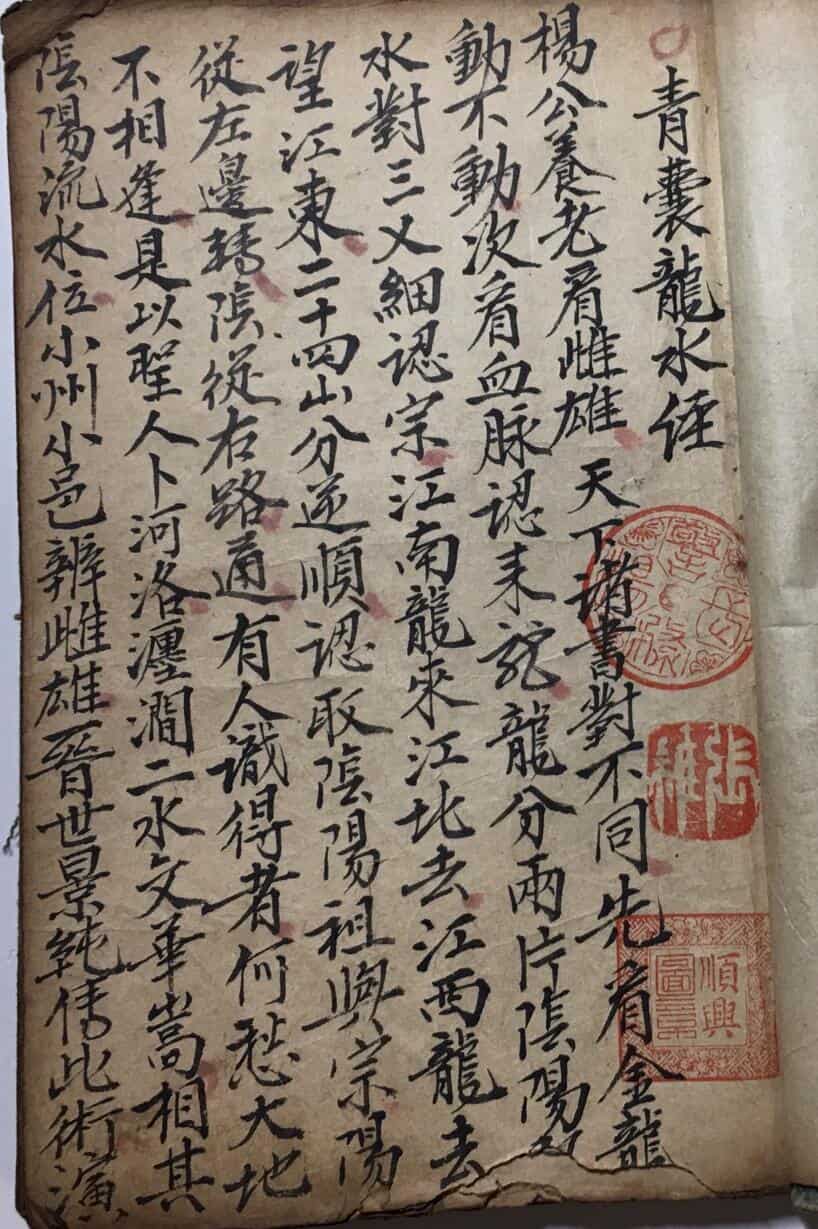 青囊龍水經
楊公養老看雌雄 天下諸書對不同先看金龍
動不動次看血脉認来龍龍分兩片陰陽
水對三义細認宗江南龍來江北去江西龍去
望江東二十四山分逆順認取陰陽祖與宗陽
從左邊轉陰從右路通有人識得者何愁大地
不相逢是以聖人卜河洛瀍澗二水交華嵩相其
陰陽流水位小州小邑辨雌雄晉世景純傳此術演
順興
圖章